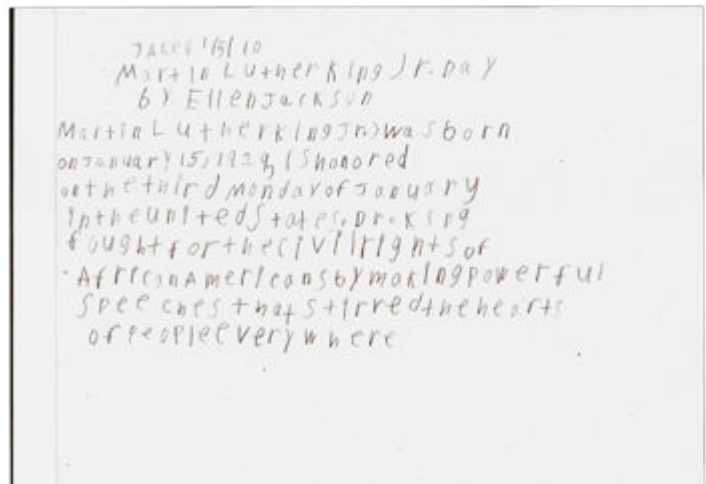 Jalen 1/5/10
Martin Luther King Jr. Day
by Ellen Jackson
Martin Luther King Jr, was born
on January 15, 1929, is honored
on the third Monday of January
in the United States. Dr. King
fought for the civil rights of
African Americans by making powerful
speeches that stirred the hearts
of people everywhere